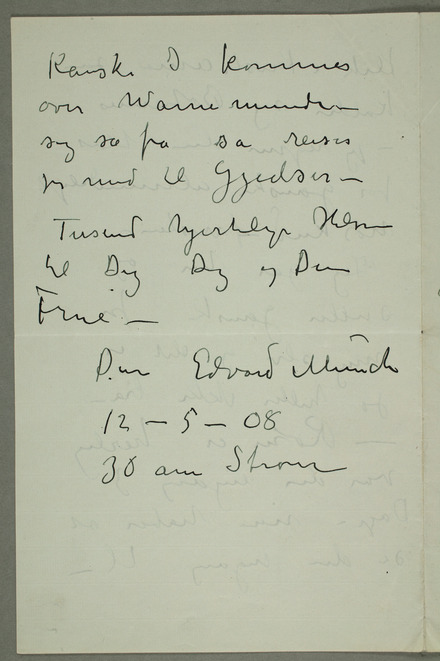 Kanske I kommer
over Warnemünde –
sig så fra så reiser
jeg med til Gjedser –
Tusend hjertelige Hilsen
til Dig og Din
Frue. –
Din Edvard Munch
12 – 5 – 08
30 am Strom